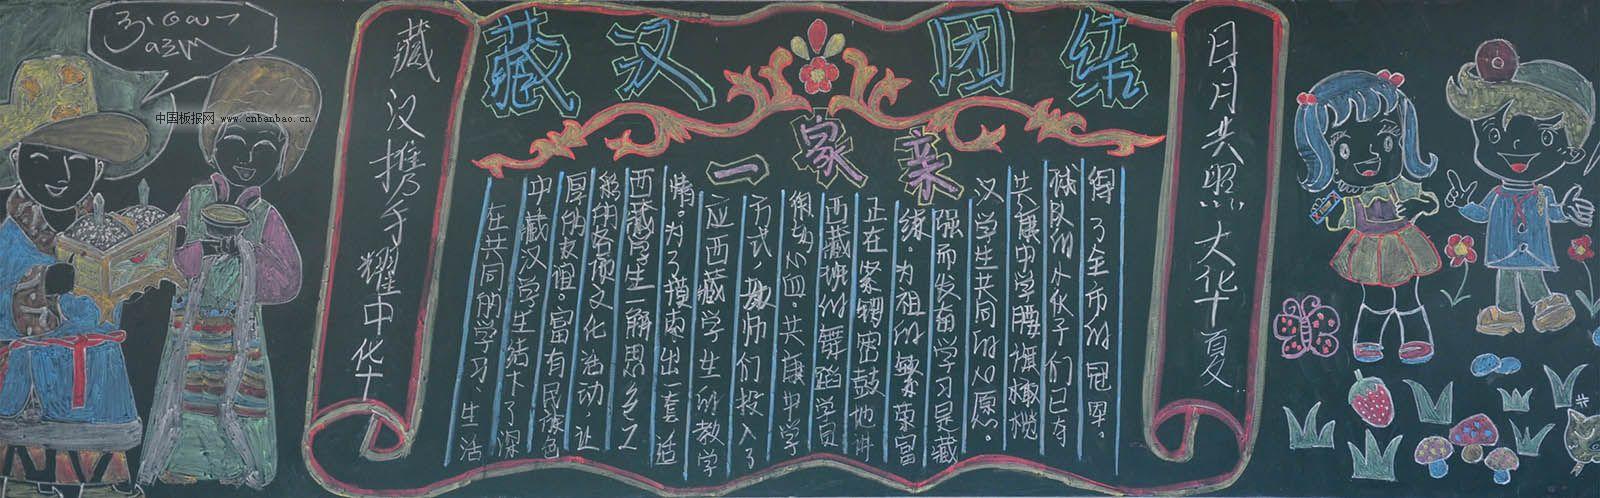 中国板报网 www.cnbanbao.cn
藏汉团结
一家亲
藏汉携手耀中华
在共同的学习、生活
中藏汉学生结下了深
厚的友谊。富有民族色
彩的各族文化活动，让
西藏学生一解思乡之
情。为了摸索出一套适
应西藏学生的教学
方式，教师们投入了
心血。共康中学
西藏班的舞蹈学员
正在紧锣密鼓地排
练。为祖的繁荣富
强而发奋学习是藏
汉学生共同的心愿。
共康中学腰旗橄榄
球队的小伙子们已夺
得了全市的冠军。
日月共照大华夏